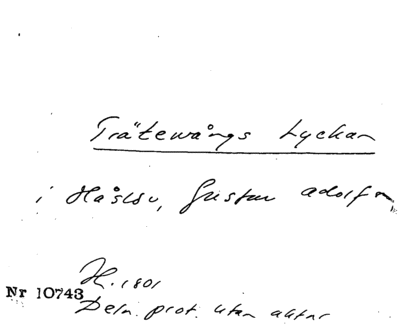 Trätewångs Lyckan
i Håslöv, Gustav Adolfs
H. 1801
Nr 10743
Deln. prot. utan aktnr